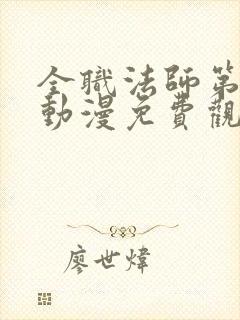 全職法師第
動漫免費觀
廖世煒